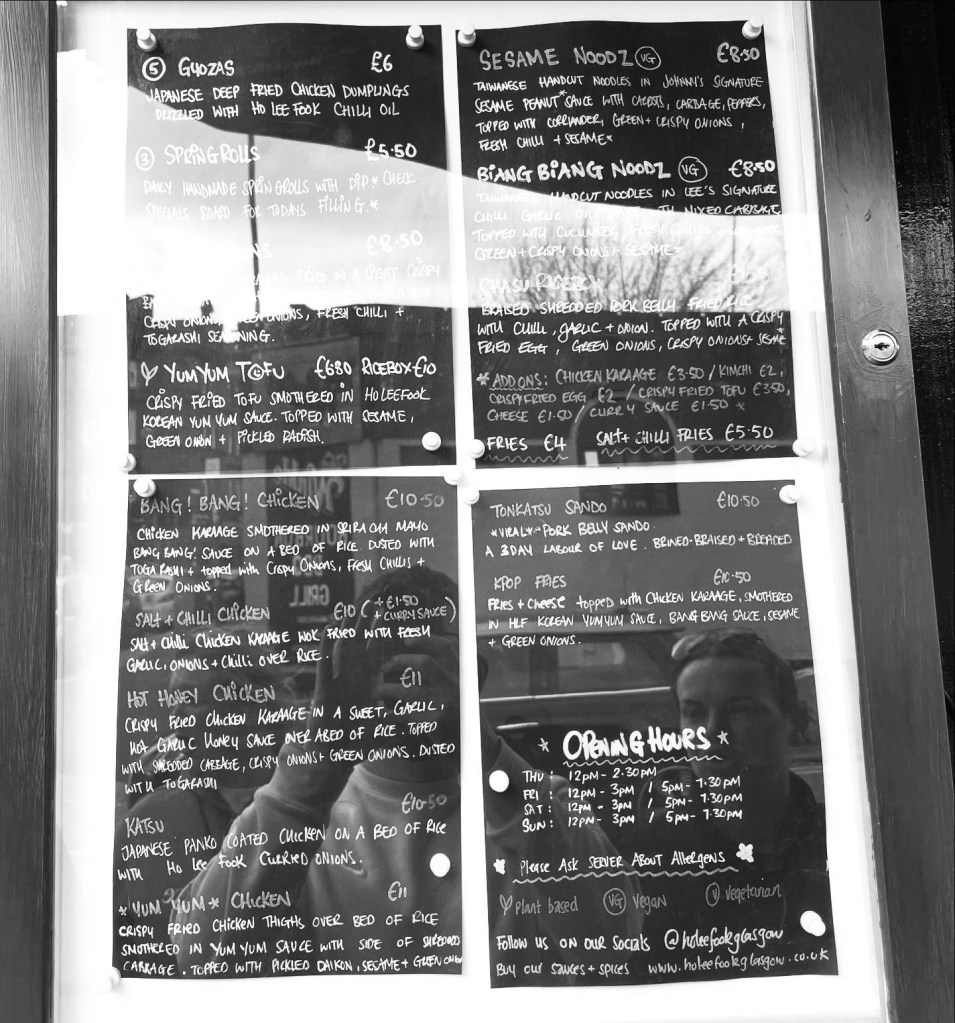 ⑤ GYOZAS £6
JAPANESE DEEP FRIED CHICKEN DUMPLINGS
DRIZZLED WITH HO LEE FOOK CHILLI OIL
③ SPRINGROLLS £5.50
DAILY HANDMADE SPRINGROLLS WITH DIP * CHECK
SPECIALS BOARD FOR TODAYS FILLING.*
£8.50
FRIED IN A LIGHT CRISPY
CRISPY ONIONS, GREEN ONIONS, FRESH CHILLI +
TOGARASHI SEASONING.
YUM YUM TOFU £6.80 RICEBOX £10
CRISPY FRIED TOFU SMOTHERED IN HO LEE FOOK
KOREAN YUM YUM SAUCE. TOPPED WITH SESAME,
GREEN ONION + PICKLED RADISH.
SESAME NOODZ VG £8.50
TAIWANESE HANDCUT NOODLES IN JOHNNY'S SIGNATURE
SESAME PEANUT* SAUCE WITH CARROTS, CABBAGE, PEPPERS,
TOPPED WITH CORIANDER, GREEN + CRISPY ONIONS,
FRESH CHILLI + SESAME*
BIANG BIANG NOODZ VG £8.50
TAIWANESE HANDCUT NOODLES IN LEE'S SIGNATURE
CHILLI GARLIC OIL WITH MIXED CABBAGE
TOPPED WITH CUCUMBER, FRESH CHILLI
GREEN + CRISPY ONIONS + SESAME*
CHASU RICEBOX
BRAISED SHREDDED PORK BELLY FRIED RICE
WITH CHILLI, GARLIC + ONION. TOPPED WITH A CRISPY
FRIED EGG, GREEN ONIONS, CRISPY ONIONS + SESAME
* ADD ONS: CHICKEN KARAAGE £3.50 / KIMCHI £2,
CRISPY FRIED EGG £2 / CRISPY FRIED TOFU £3.50,
CHEESE £1.50 / CURRY SAUCE £1.50 *
FRIES £4 SALT + CHILLI FRIES £5.50
BANG! BANG! CHICKEN £10.50
CHICKEN KARAAGE SMOTHERED IN SRIRACHA MAYO
BANG BANG! SAUCE ON A BED OF RICE DUSTED WITH
TOGARASHI + topped with CRISPY ONIONS, FRESH CHILLIS +
GREEN ONIONS.
SALT + CHILLI CHICKEN £10 (+£1.50
+ CURRY SAUCE)
SALT + Chilli CHICKEN KARAAGE WOK FRIED WITH FRESH
GARLIC, ONIONS + CHILLI OVER RICE.
HOT HONEY CHICKEN £11
CRISPY FRIED CHICKEN KARAAGE IN A SWEET, GARLIC,
HOT GARLIC HONEY SAUCE OVER A BED OF RICE. TOPPED
WITH SHREDDED CABBAGE, CRISPY ONIONS + GREEN ONIONS. DUSTED
WITH TOGARASHI
KATSU £10.50
JAPANESE PANKO COATED CHICKEN ON A BED OF RICE
WITH HO LEE FOOK CURRIED ONIONS.
* YUM YUM * CHICKEN £11
CRISPY FRIED CHICKEN THIGHS OVER BED OF RICE
SMOTHERED IN YUM YUM SAUCE WITH SIDE OF SHREDDED
CABBAGE. TOPPED WITH PICKLED DAIKON, SESAME + GREEN ONION
TONKATSU SANDO £10.50
*VIRAL* PORK BELLY SANDO.
A 3 DAY LABOUR OF LOVE. BRINED-BRAISED + BREADED
KPOP FRIES £10.50
FRIES + CHEESE topped with CHICKEN KARAAGE, SMOTHERED
IN HLF KOREAN YUM YUM SAUCE, BANG BANG SAUCE, SESAME
+ GREEN ONIONS.
* OPENING HOURS *
THU: 12PM - 2.30PM
FRI: 12PM - 3PM / 5PM - 7.30PM
SAT: 12PM - 3PM / 5PM - 7.30PM
SUN: 12PM - 3PM / 5PM - 7.30PM
Please Ask SERVER ABOUT Allergens
plant based VG Vegan V vegetarian
Follow us ON OUR SOCIALS @holeefookglasgow
BUY OUR SAUCES + SPICES www.holeefookglasgow.co.uk